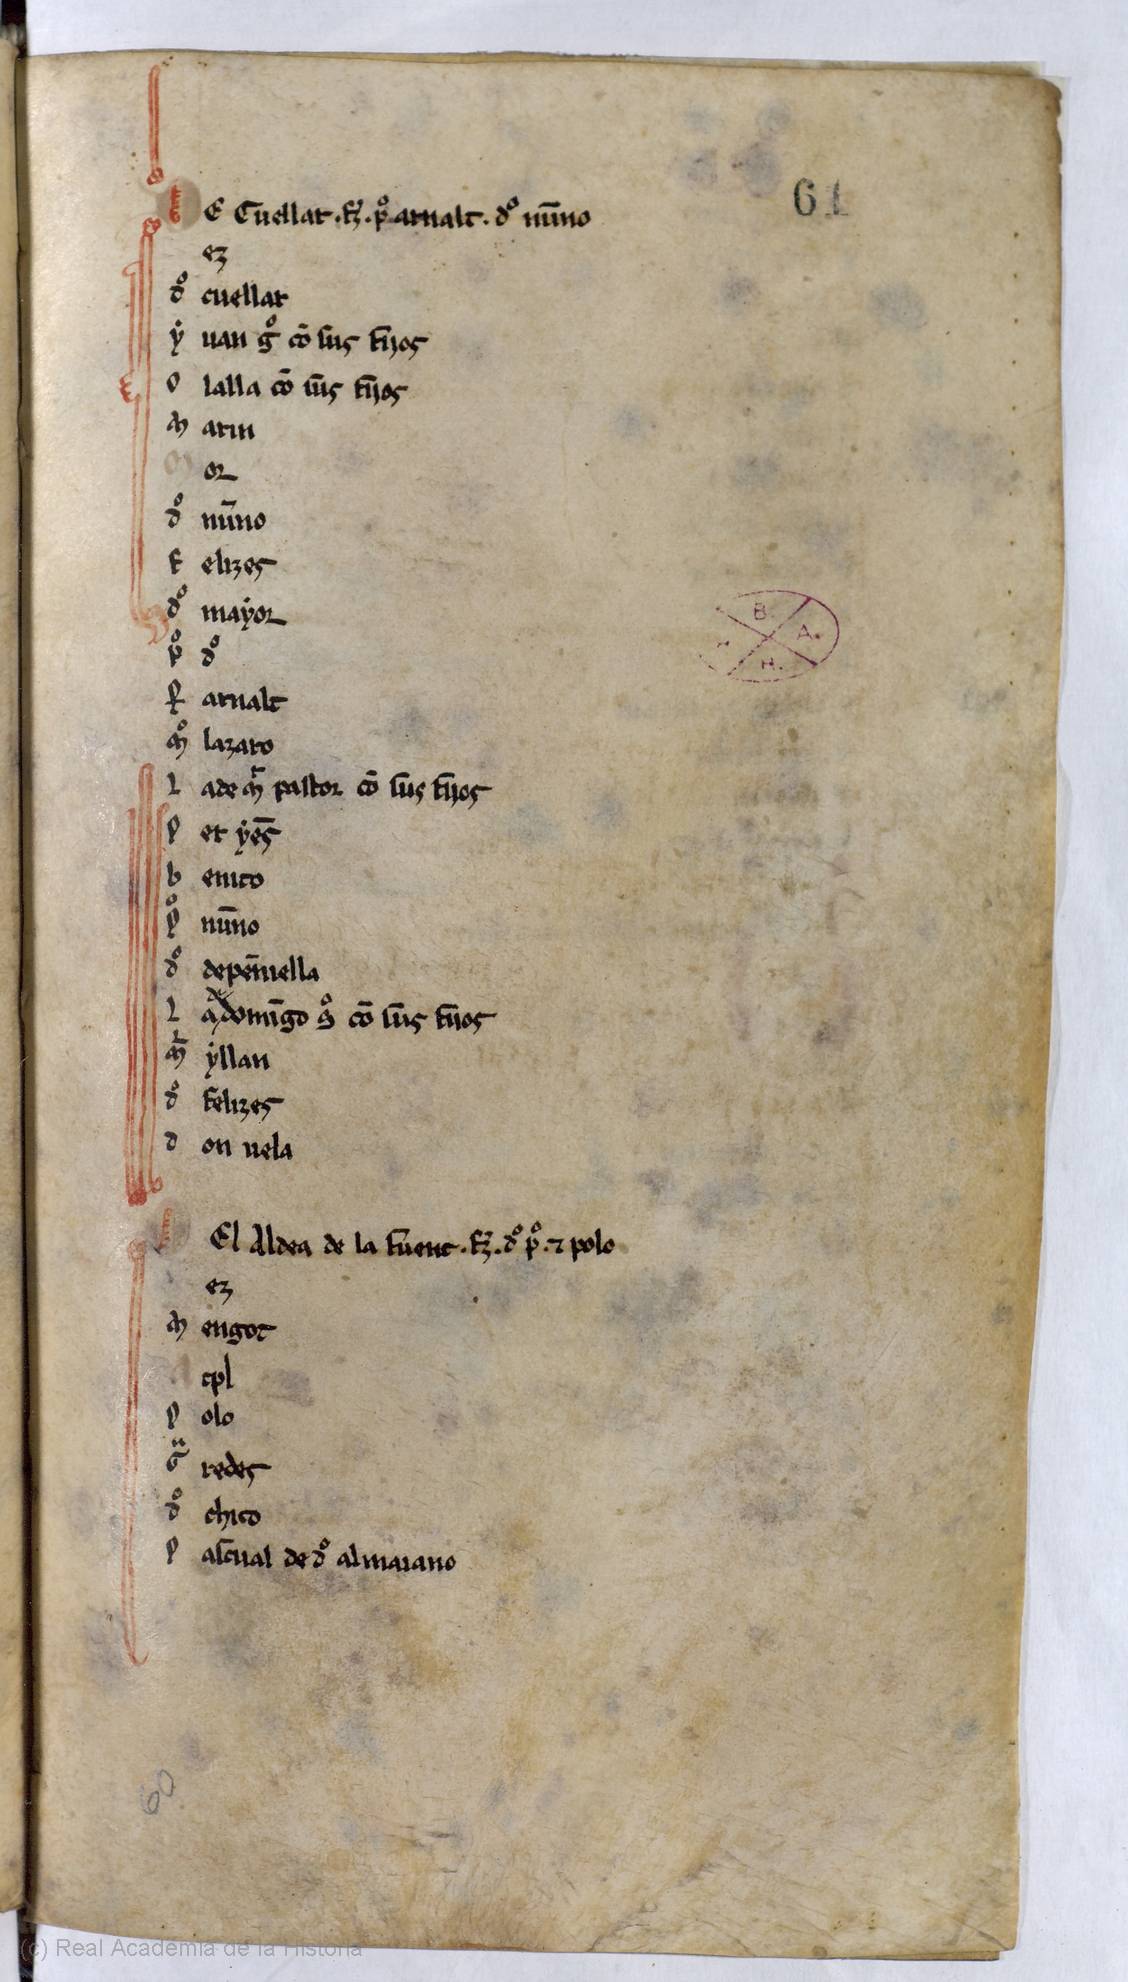 61
E Cuellar . fz̃ . pº arnalt . dº nũno
ez
dº cuellar
ẏ uan gº cõ sus fijos
o lalla cõ sus fijos
m arin
or
dº nũno
f elizes
dº mayor
pº dº
P arnalt
mº lazaro
l ade mr̃ pastor cõ sus fijos
p et yẽs
b enito
pº nũno
dº depẽniella
l a domĩgo gº cõ sus fijos
mr̃ ẏllan
dº felizes
d on uela
El Aldea de la fuent . fz̃ . dº pº . ⁊ polo
ez
m engot
cpl
p olo
redes
dº chico
p ascual de dº almaiano
B. A. H.
60
(c) Real Academia de la Historia